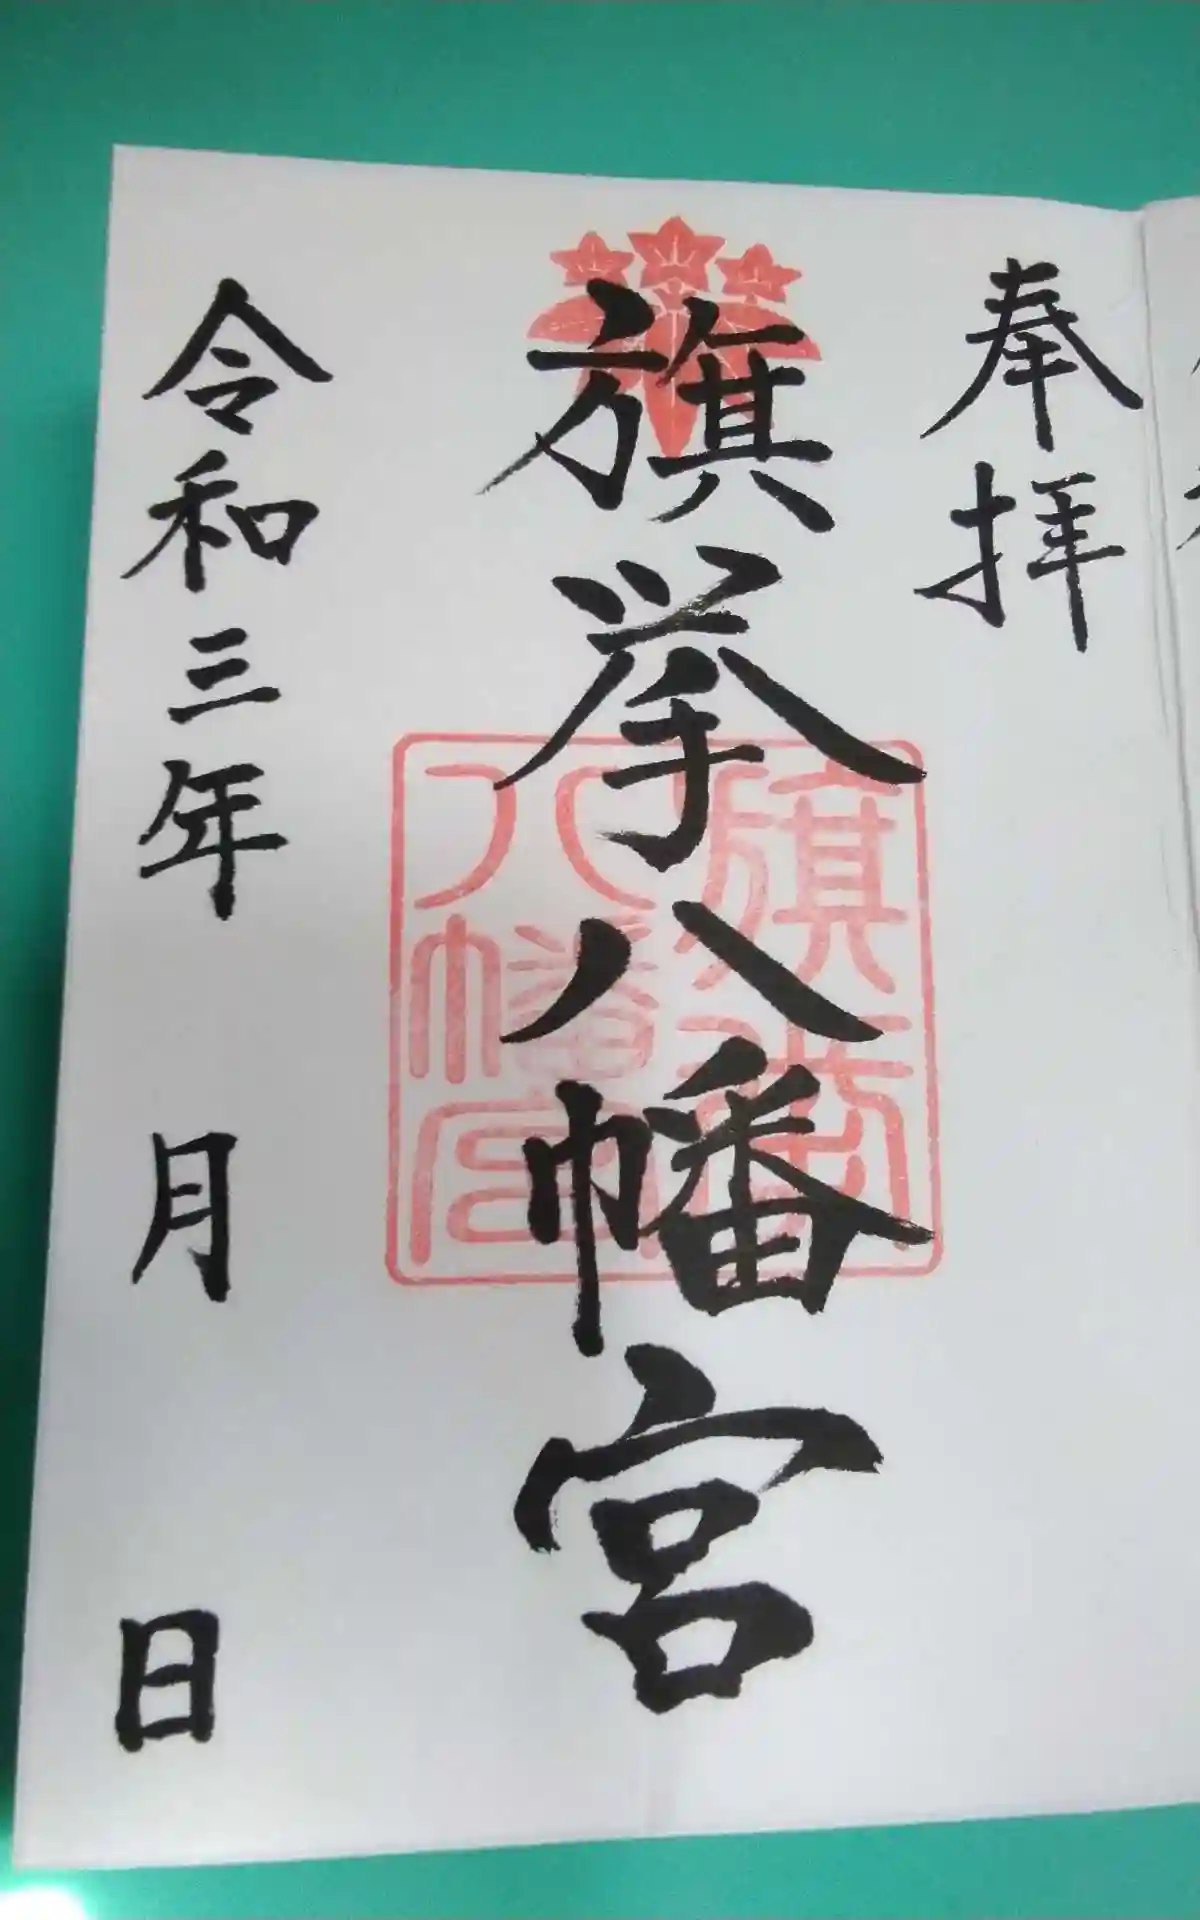 奉拝
旗挙八幡宮
旗挙
八幡宮
令和三年 月 日